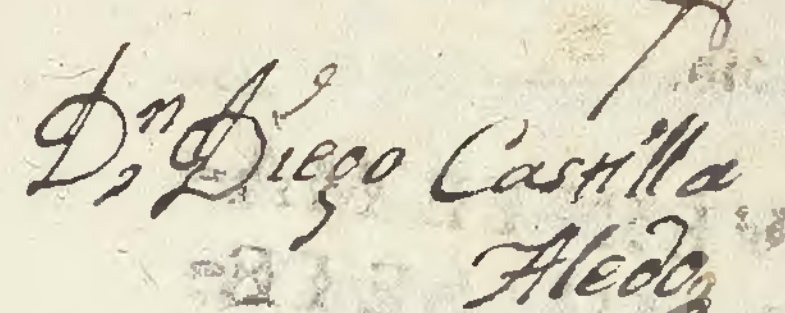 Dn Diego Castilla
Aledo